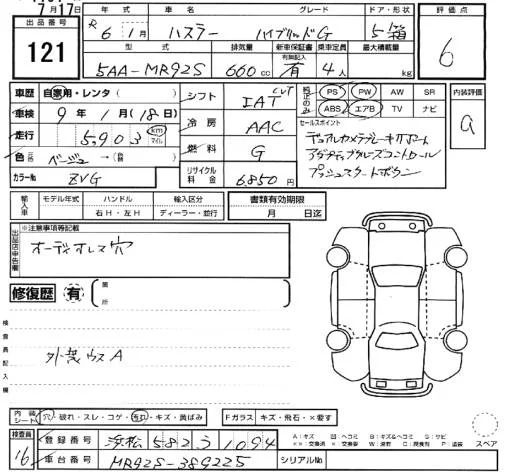 7月17日
出品番号
121
年式 車名 グレード ドア・形状
R 6年 1月 ハスラー ハイブリッドG 5 箱
型式 排気量 新車保証書 有無記入 乗車定員 最大積載量
5AA-MR92S 660cc 有 4人 kg
評価点
6
車歴 自家用・レンタ( )
車検 9年 1月(18日)
走行 5,903 km マイル
色 ベージュ →( )
カラーNo ZVG
シフト IAT CVT
冷房 AAC
燃料 G
リサイクル料金 6,850円
純正のみ PS PW AW SR
ABS エアB TV ナビ
セールスポイント
デュアルカメラブレーキサポート
アダプティブクルーズコントロール
プッシュスタートボタン
内装評価
a
輸入車 モデル年式 ハンドル 輸入区分
右H・左H ディーラー・並行
書類有効期限
月 日迄
出品店申告欄
※注意事項等記載
オーディオレス穴
修復歴 有 箇所
検査員記入欄
外装ウスA
内装シート 穴・破れ・スレ・コゲ・汚れ・キズ・黄ばみ
Fガラス キズ・飛石・×要す
スペア
検査員
16
登録番号 浜松 582 う 1094
車台番号 MR92S-389225
シリアルNo
A:キズ 凹:ヘコミ B:キズ&ヘコミ S:サビ
××:交換済 ×:交換要 W:波野 C:腐食有 P:塗装